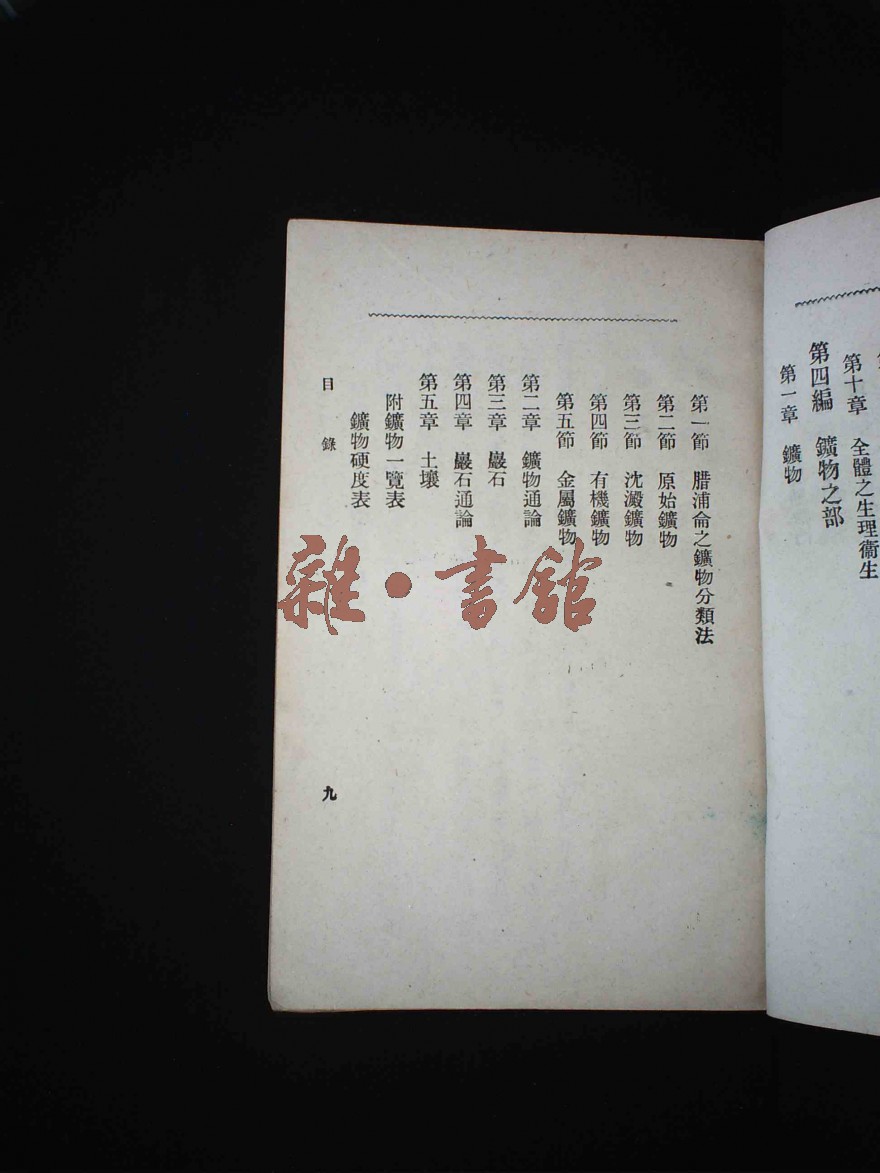 第十章　全體之生理衞生
第四編　鑛物之部
第一章　鑛物
第一節　腊浦侖之鑛物分類法
第二節　原始鑛物
第三節　沈澱鑛物
第四節　有機鑛物
第五節　金屬鑛物
第二章　鑛物通論
第三章　巖石
第四章　巖石通論
第五章　土壤
附鑛物一覽表
鑛物硬度表
目　錄
九
雜·書館